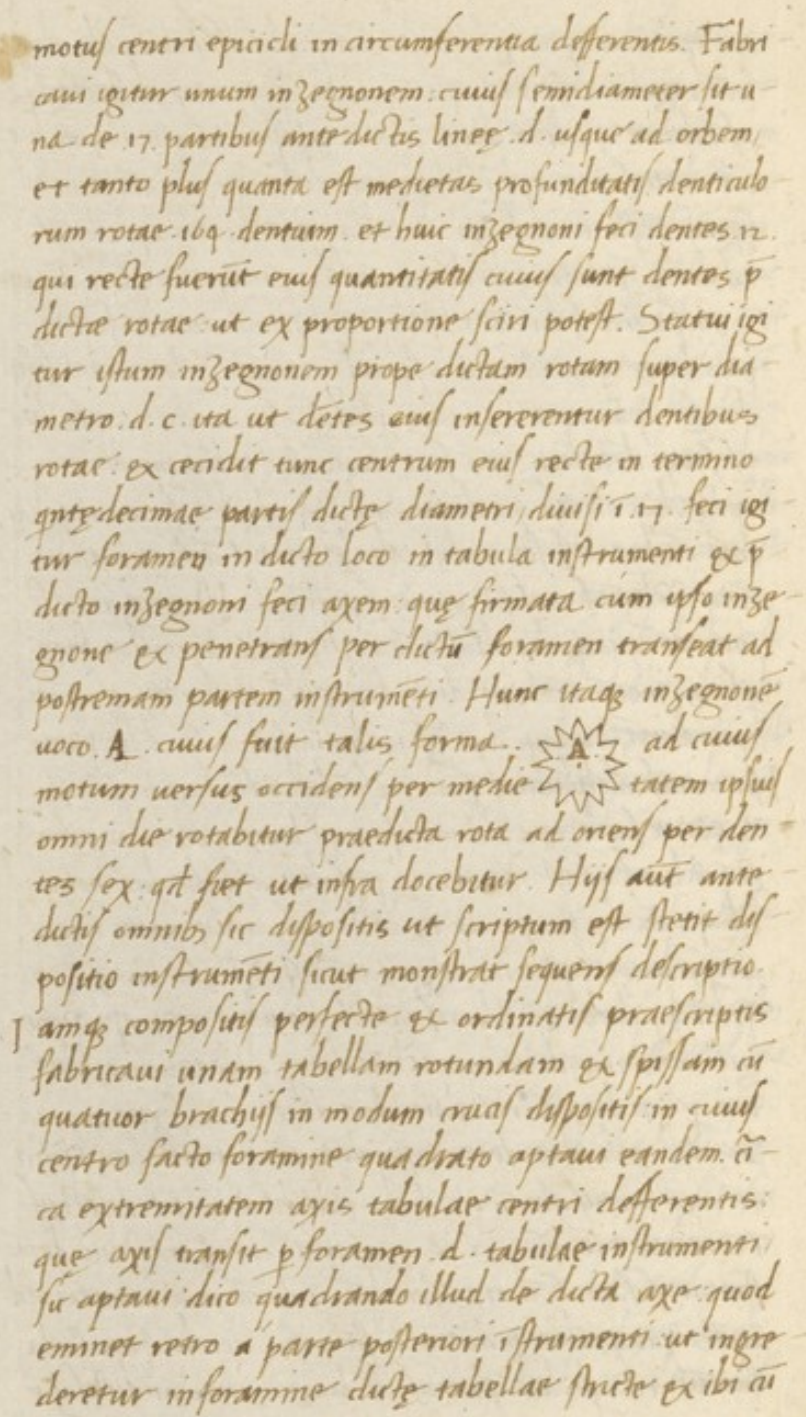 motus centri epicicli in circumferentia defferentis. Fabri
caui igitur unum inʒegnonem. cuius semidiameter sit u
na de .17. partibus antedictis lineę .d. usque ad orbem,
et tanto plus quanta est medietas profunditatis denticulo
rum rotae .169. dentium. et huic inʒegnoni feci dentes .12.
qui recte fuerūt eius quantitatis cuius sunt dentes p̄
dictae rotae ut ex proportione sciri potest. Statui igi
tur istum inʒegnonem prope dictam rotam super dia
metro .d.c. ita ut dētes eius insererentur dentibus
rotae. & cecidit tunc centrum eius recte in termino
qntędecimae partis dictę diametri, diuisi ī .17. feci igi
tur foramen in dicto loco in tabula instrumenti & p̄
dicto inʒegnoni feci axem quę firmata cum ipso inʒe
gnone & penetrans per dictū foramen transeat ad
postremam partem instrumēti. Hunc itaqꝫ inʒegnonē
uoco .A. cuius fuit talis forma. A ad cuius
motum uersus occidens per medie tatem ipsius
omni die rotabitur praedicta rota ad oriens per den
tes sex. qđ fiet ut infra docebitur. Hijs aūt ante
dictis omnibꝫ sic dispositis ut scriptum est stetit dis
positio instrumēti sicut monstrat sequens descriptio.
Iamqꝫ compositis perfecte & ordinatis praescriptis
fabricaui unam tabellam rotundam & spissam cū
quatuor brachijs in modum crucis dispositis in cuius
centro facto foramine quadrato aptaui eandem. cī
ca extremitatem axis tabulae centri defferentis.
quę axis transit ꝑ foramen .d. tabulae instrumenti
sic aptaui dico quadrando illud de dicta axe quod
eminet retro a parte posteriori īstrumenti ut ingre
deretur in foramine dictę tabellae stricte & ibi cū